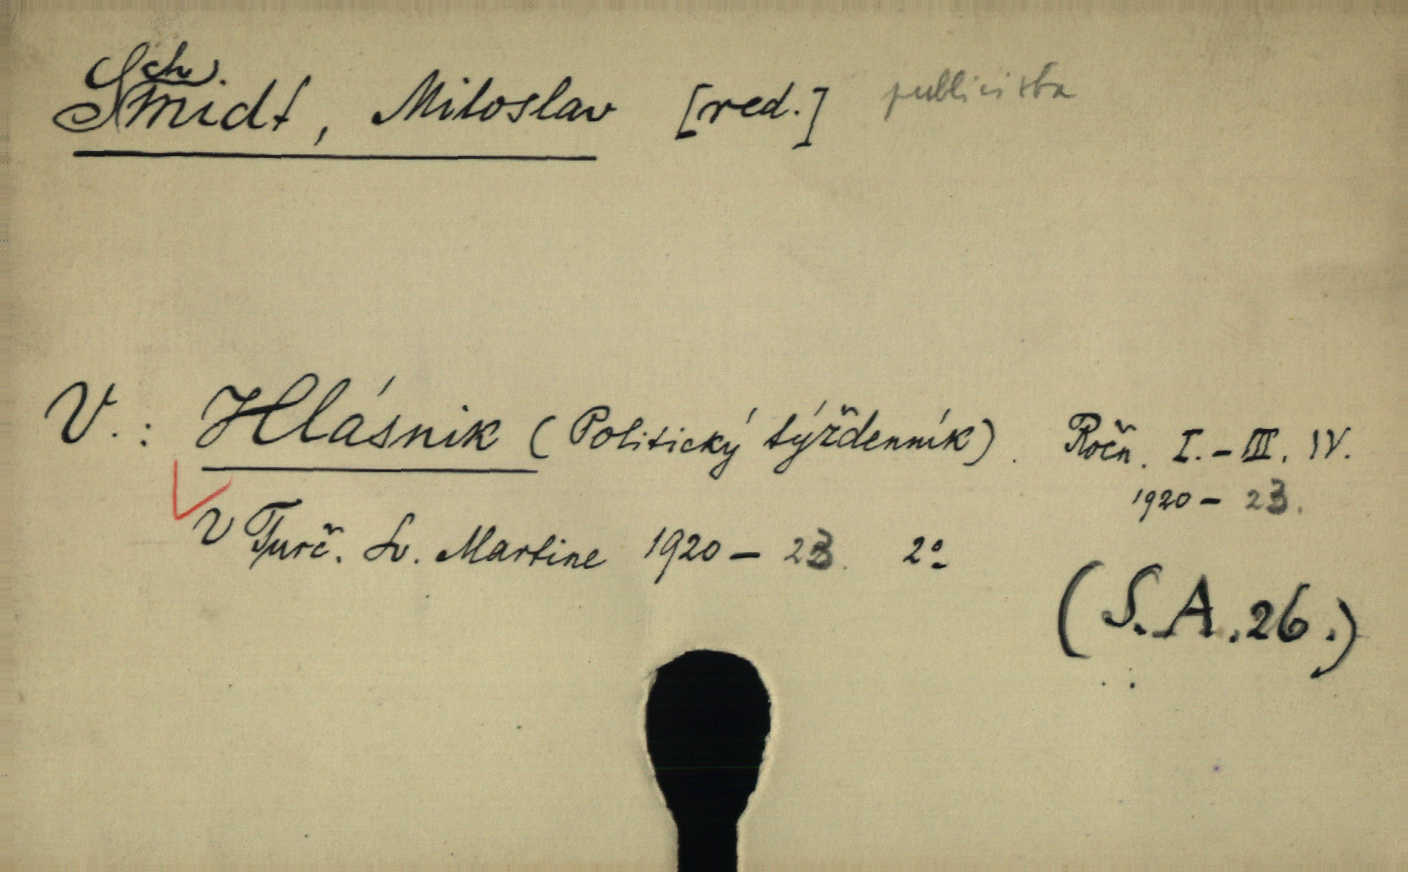 Schmidt, Miloslav [red.] publicista
V.: Hlásnik (Politický týždenník). Ročn. I.-III. IV.
1920 - 23.
V Turč. Sv. Martine 1920 - 23. 2°
(S.A.26.)